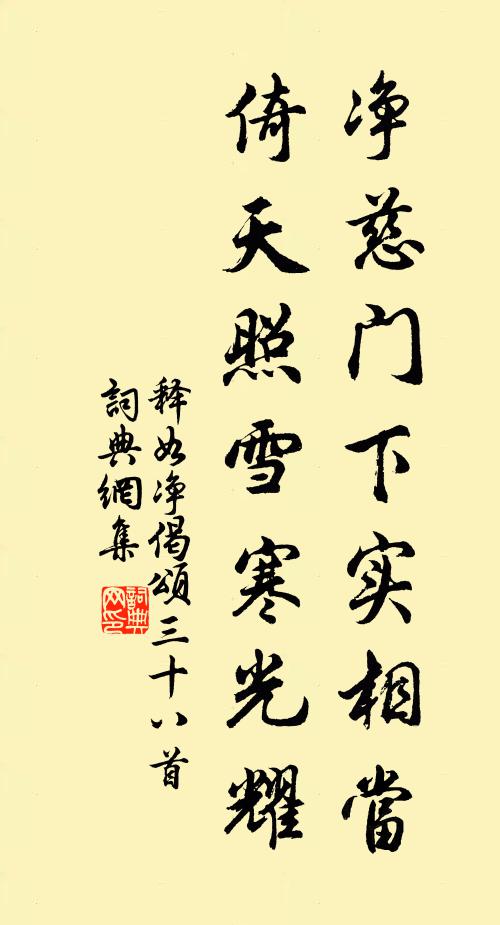 净慈门下实相當
倚天照雪寒光耀
释如净偈頌三十八首
詞典網集
詞典网印